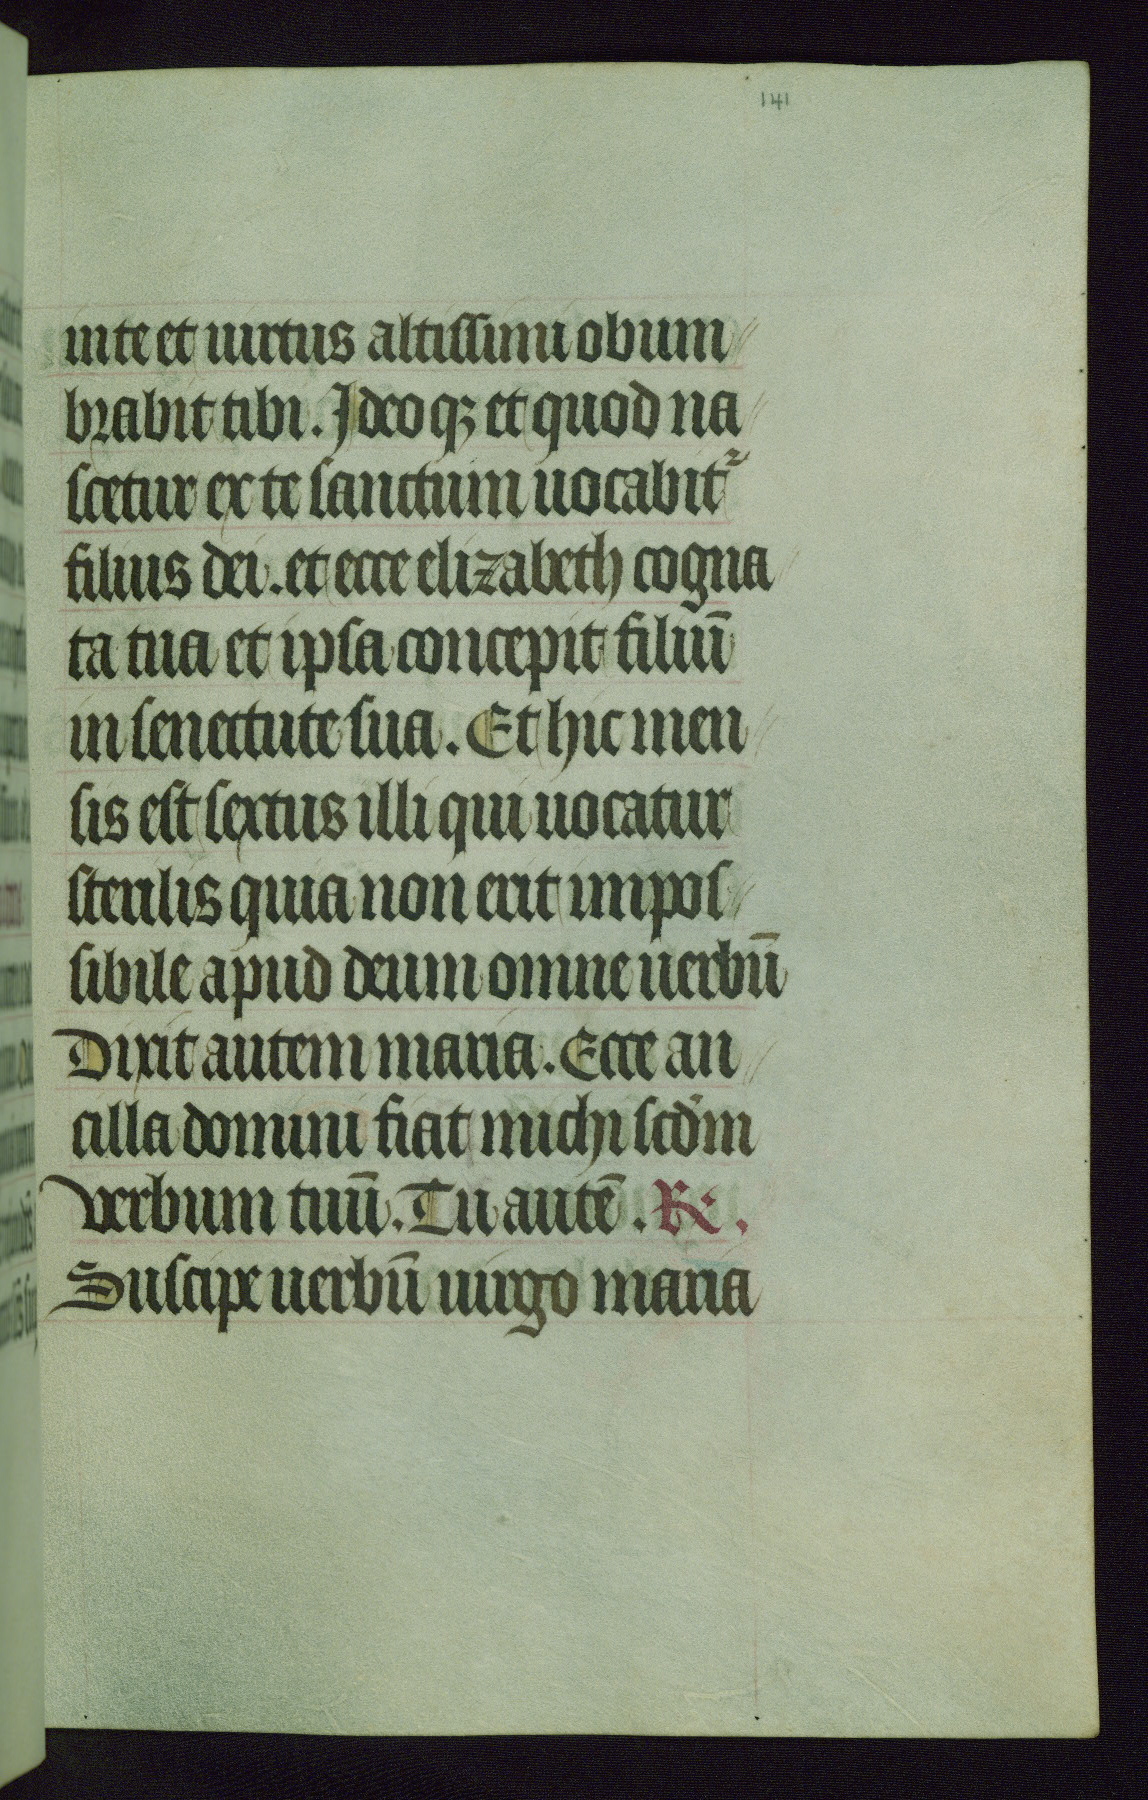 141
in te et uirtus altissimi obum
brabit tibi. Ideoqꝫ et quod na
scetur ex te sanctum uocabitᷣ
filius dei. et ecce elizabeth cogna
ta tua et ipsa concepit filiū
in senectute sua. Et hic men
sis est sextus illi qui uocatur
sterilis quia non erit impos
sibile apud deum omne uerbū
Dixit autem maria. Ecce an
cilla domini fiat michi scd̄m
verbum tuū. Tu autē. ℟.
Suscipe uerbū uirgo maria